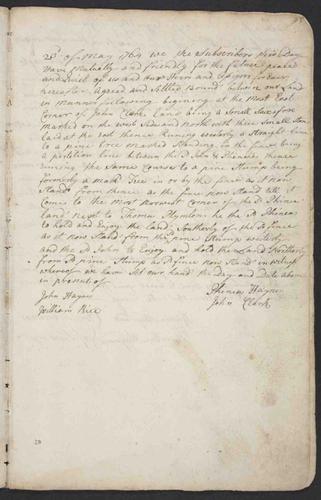 25th of May 1764 we the Subscribers this Day
Have Mutually and friendly for the future peace
and Quiet of us and our Heirs and Assigns for Ever
hereafter Agreed and Settled Bounds between our Land
in Manner following begining at the Most East
Corner of John Clark Land being a Small
Marked on the west Side and North with three Small Stones
Laid at the root thence Runing westerly a Straight line
to a pine tree marked Standing in the fence being
a partition fence between the sd John & Phineas thence
Runing the Same Course to a pine Stump being
formerly a mark Tree in or by the fence as it now
Stands from thence as the fence now Stand till it
Comes to the most Norwest Corner of the sd Phineas
Land next to Thomas the sd Phineas
to hold and Enjoy the Land Southerly of the sd fence
as it now Stand from the pine Stump westerly
and the sd John to Enjoy and hold the Land Northerly
from sd pine Stump as sd fence now Stand in witness
whereof we have Set our hand the Day and Date above
in presence of
John Haynes
Phineas Haynes
William Rice
John Clark
28